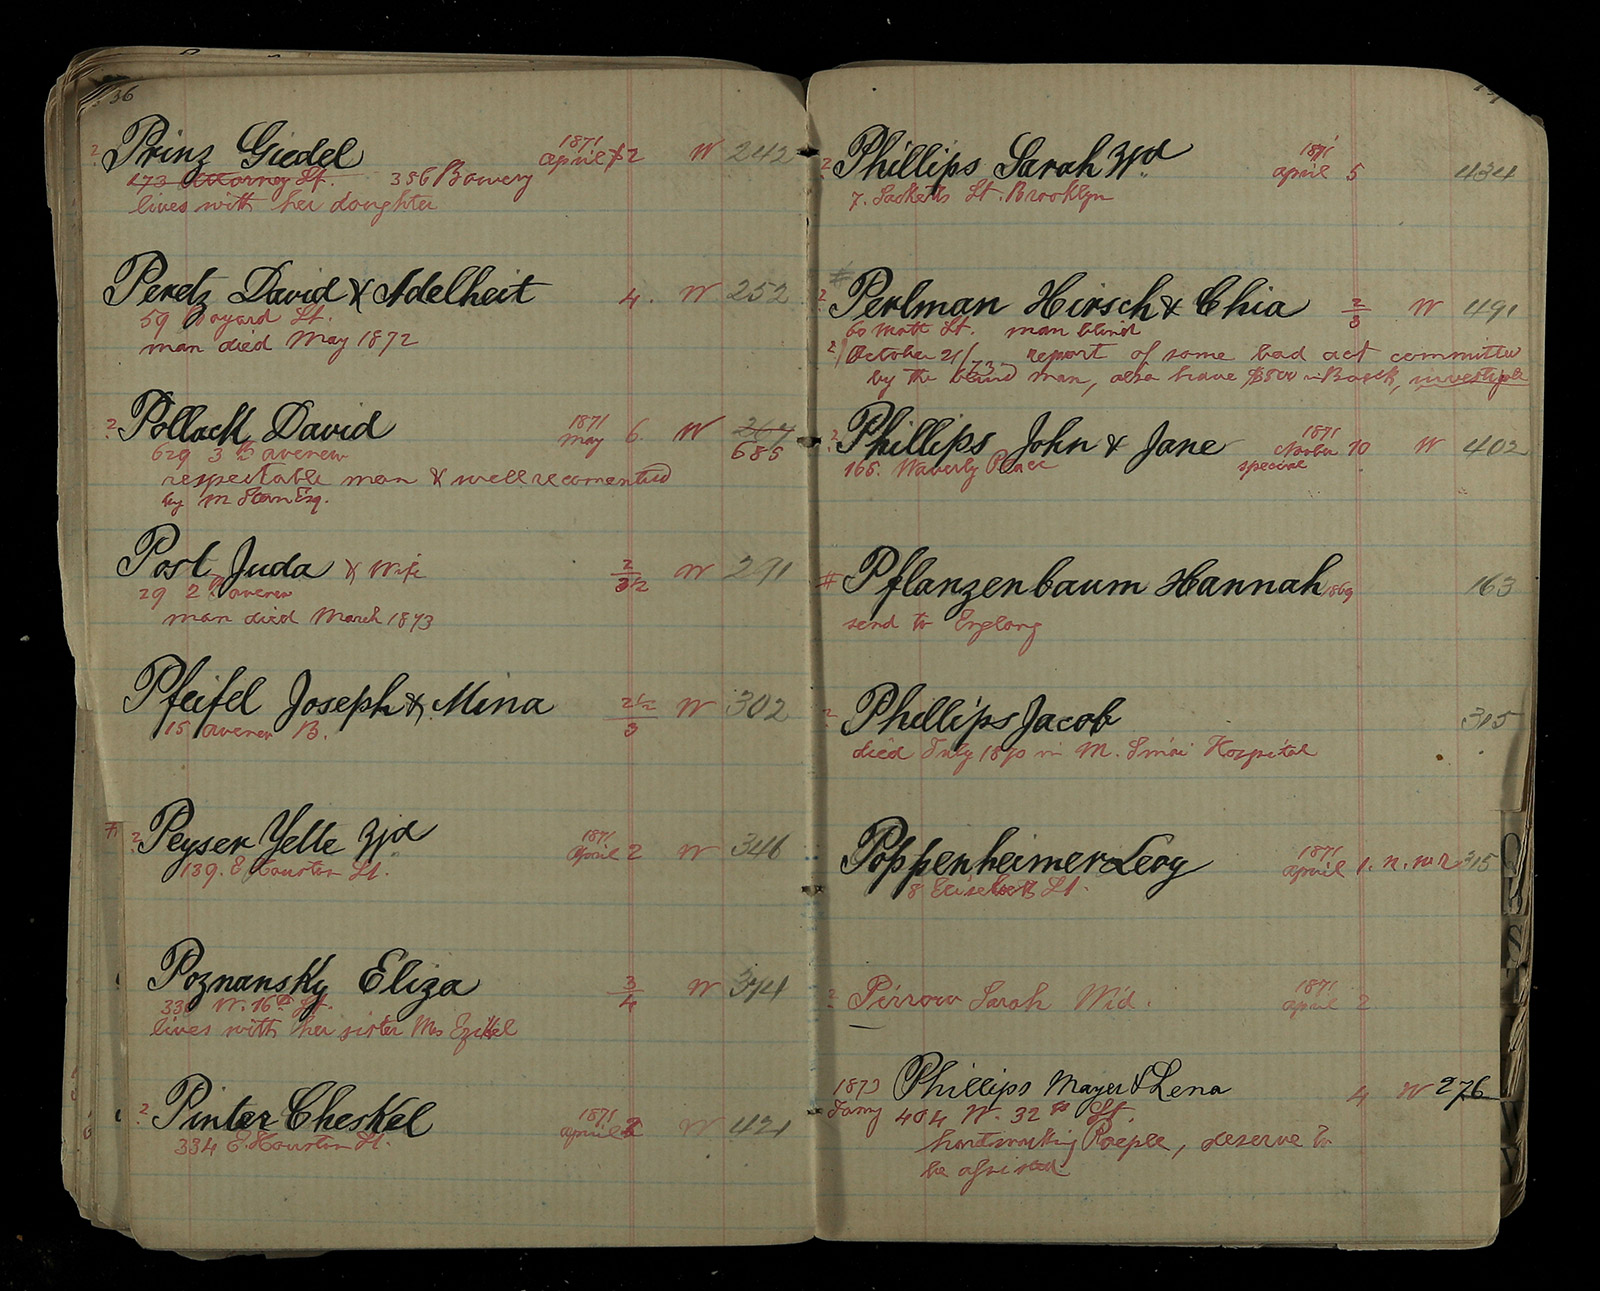 36
2 Prinz Giedel 1871 April 2 W 242
173 Attorney St. 356 Bowery
lives with her daughter
Peretz David & Adelheit 4. W 252
59 Bayard St.
man died May 1872
2 Pollack David 1871 May 6. W 267
629 3d avenew 685
respectable man & well recomented
by M Stern Esq.
Post Juda & Wife 2/3½ W 291
29 2d avenew
man died March 1873
Pfeifel Joseph & Mina 2½/3 W 302
15 avenew B.
# 2 Peyser Yette Wd 1871 April 2 W 346
139. E Houston St.
Poznansky Eliza 3/4 W 394
336 W. 16th St.
lives with her sister Mrs Ezikel
2 Pinter Cheskel 1871 April 2 W 421
334 E. Houston St.
2 Phillips Sarah Wd 1871 April 5 434
7. Sacketts St. Brooklyn
#
2 Perlman Hirsch & Chia 2/3 W 491
60 Mott St. man blind
2 October 21/73 report of some bad act committe
by the blind man, also have $800 in Bank, investigate
2 Phillips John & Jane 1871 October 10 W 402
165. Waverly Place special
# Pflanzenbaum Hannah 1869 163
send to Englang
2 Phillips Jacob 315
died July 1870 in M. Sinai Hospital
Poppenheimer Leoy 1871 April 1. n. w r 315
8 Eliselbeth St.
2 Perrow Sarah Wid. 1871 April 2
1873 Phillips Mayer & Lena 4 W 276
Jany 404 W. 32th St.
hartworking Poeple, deserve to
be assisted